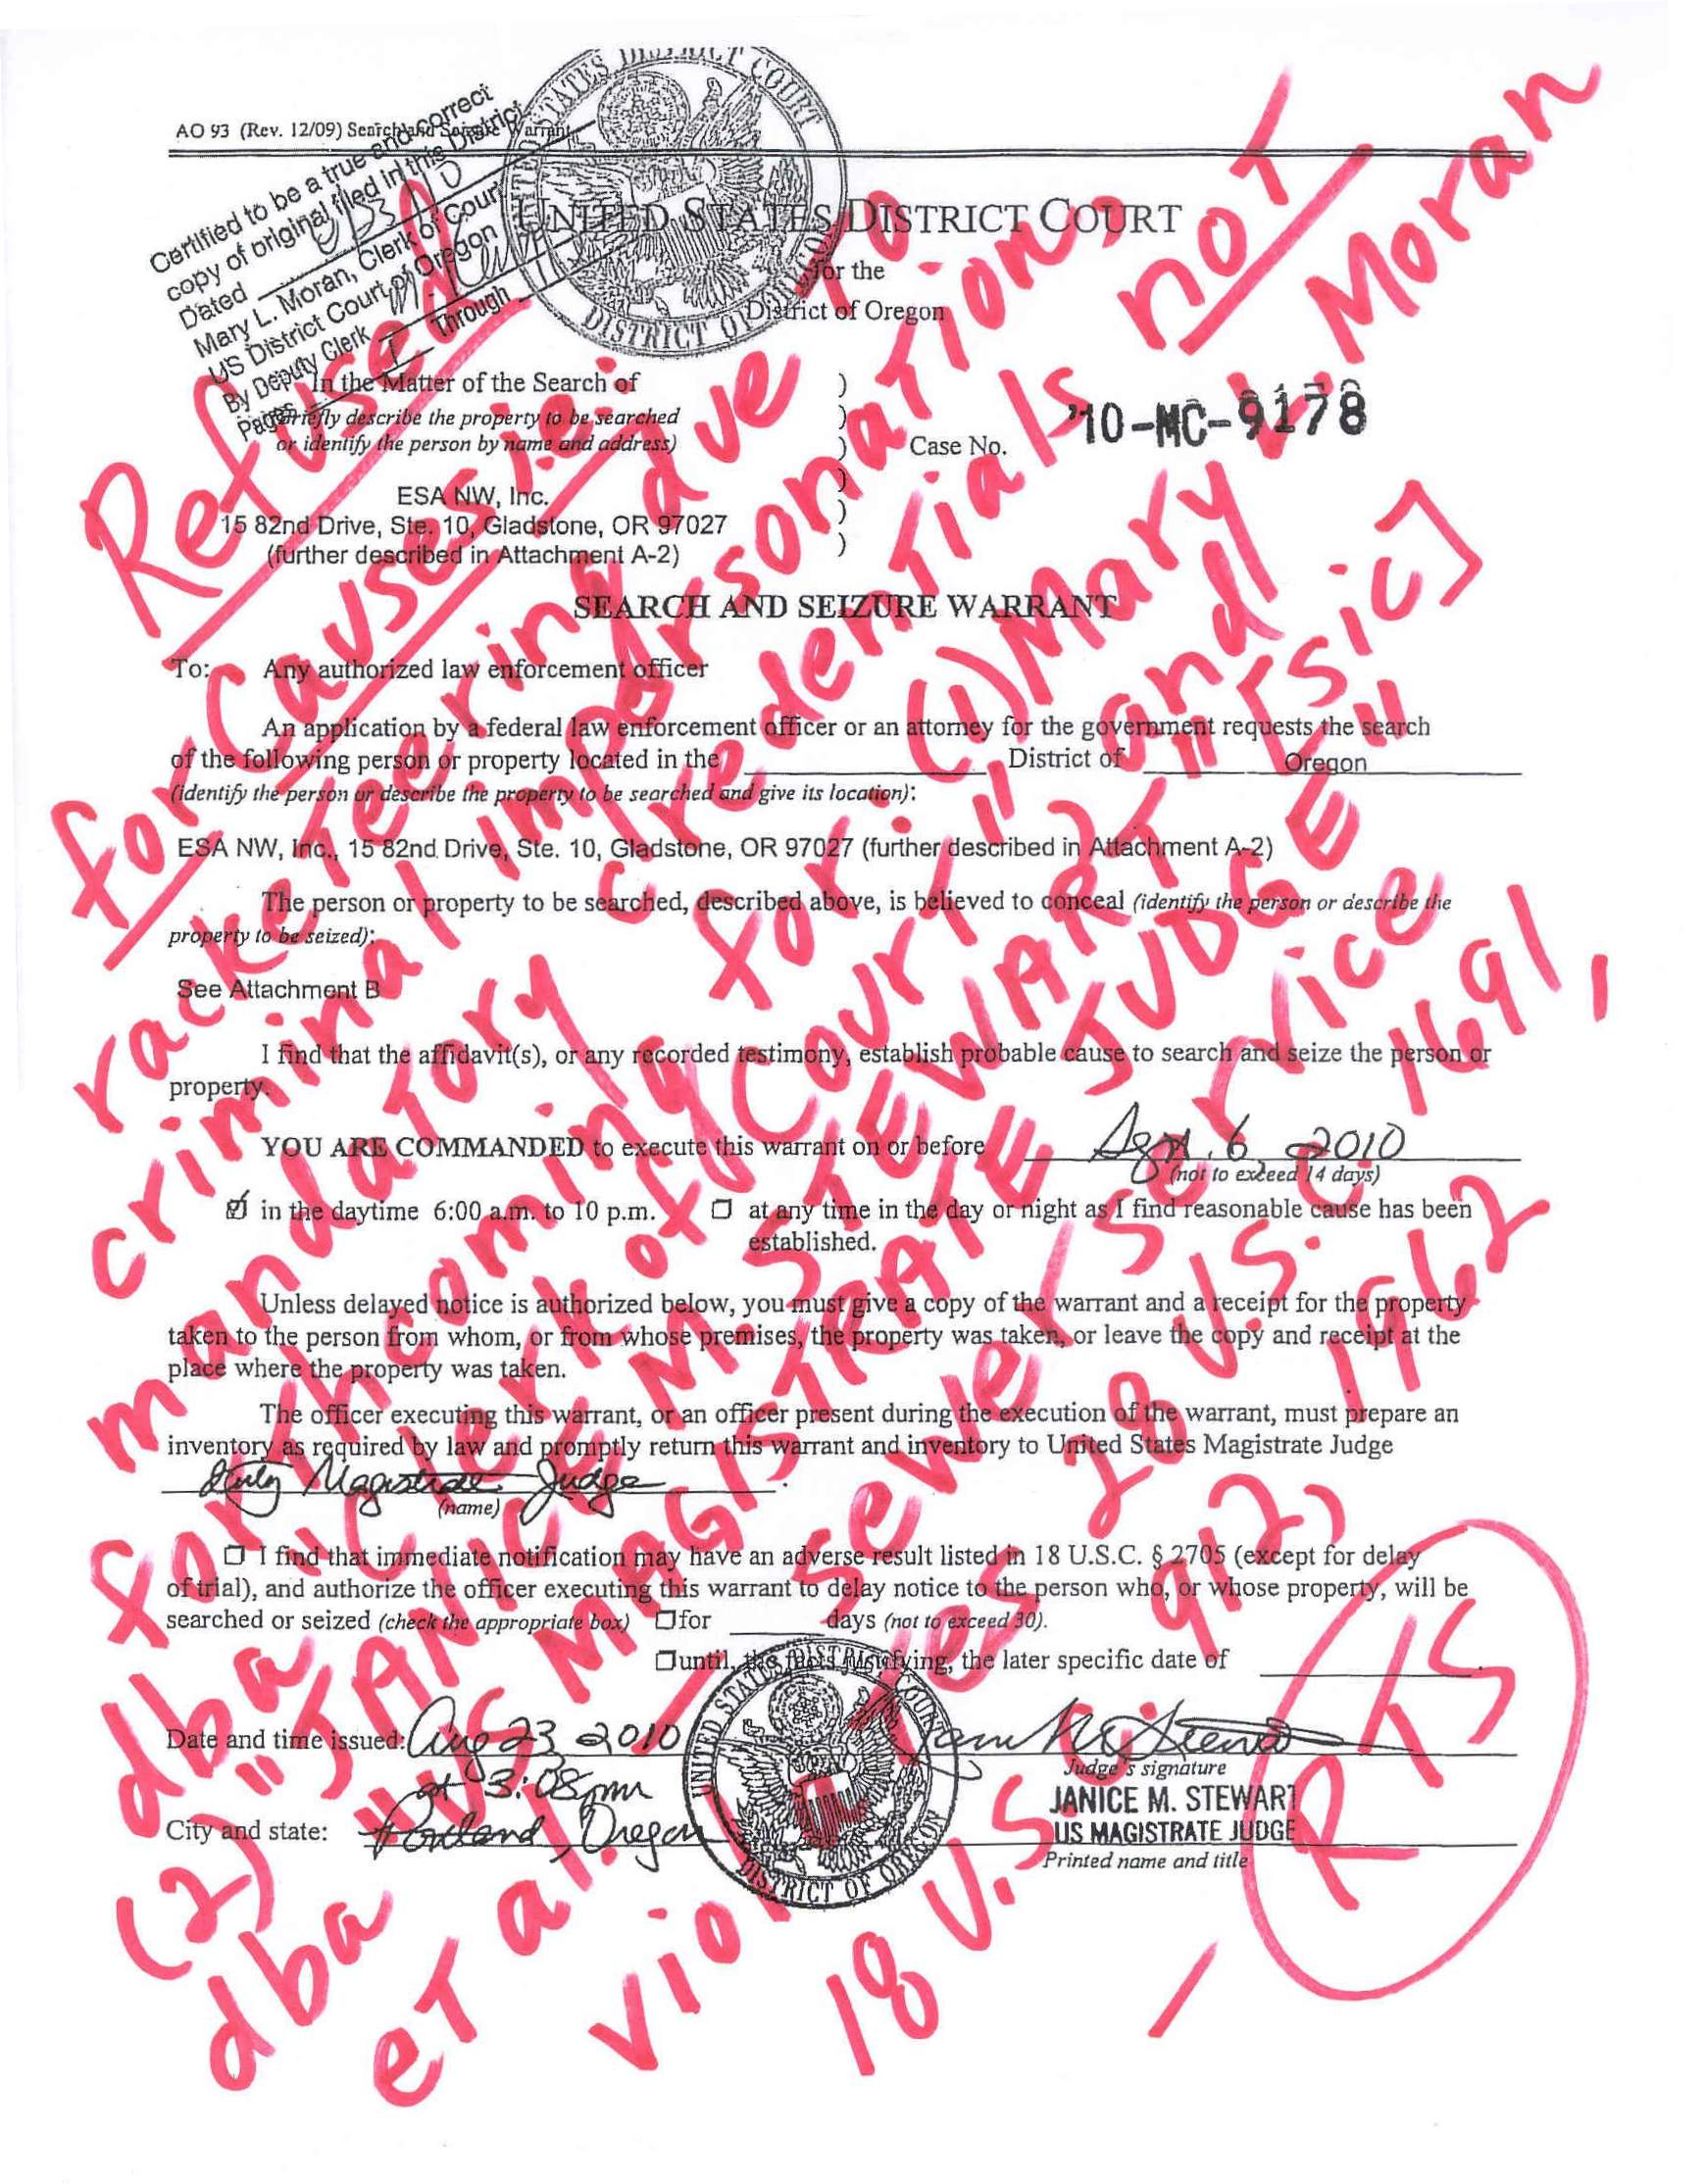 AO 93 (Rev. 12/09) Search and Seizure Warrant
Certified to be a true and correct
copy of original filed in this District
Dated
Mary L. Moran, Clerk of Court
US District Court of Oregon
By Deputy Clerk
Pages 1 Through
UNITED STATES DISTRICT COURT
DISTRICT OF
UNITED STATES DISTRICT COURT
for the
District of Oregon
In the Matter of the Search of
(Briefly describe the property to be searched
or identify the person by name and address)
ESA NW, Inc.
15 82nd Drive, Ste. 10, Gladstone, OR 97027
(further described in Attachment A-2)
)
)
)
)
)
)
Case No.
'10-MC-9178
SEARCH AND SEIZURE WARRANT
To: Any authorized law enforcement officer
An application by a federal law enforcement officer or an attorney for the government requests the search
of the following person or property located in the District of Oregon
(identify the person or describe the property to be searched and give its location):
ESA NW, Inc., 15 82nd Drive, Ste. 10, Gladstone, OR 97027 (further described in Attachment A-2)
The person or property to be searched, described above, is believed to conceal (identify the person or describe the
property to be seized):
See Attachment B
I find that the affidavit(s), or any recorded testimony, establish probable cause to search and seize the person or
property.
YOU ARE COMMANDED to execute this warrant on or before Sept. 6 2010
(not to exceed 14 days)
in the daytime 6:00 a.m. to 10 p.m.
at any time in the day or night as I find reasonable cause has been
established.
Unless delayed notice is authorized below, you must give a copy of the warrant and a receipt for the property
taken to the person from whom, or from whose premises, the property was taken, or leave the copy and receipt at the
place where the property was taken.
The officer executing this warrant, or an officer present during the execution of the warrant, must prepare an
inventory as required by law and promptly return this warrant and inventory to United States Magistrate Judge
Duty Magistrate Judge
(name)
I find that immediate notification may have an adverse result listed in 18 U.S.C. § 2705 (except for delay
of trial), and authorize the officer executing this warrant to delay notice to the person who, or whose property, will be
searched or seized (check the appropriate box) for days (not to exceed 30).
until, the facts justifying, the later specific date of
Date and time issued: Aug 23 2010
at 3:08pm
Judge's signature
City and state: Portland, Oregon
JANICE M. STEWART
US MAGISTRATE JUDGE
Printed name and title
UNITED STATES DISTRICT COURT
DISTRICT OF OREGON
Refused
for Causes i.e.:
racketeering due to
criminal impersonation,
mandatory credentials not
forthcoming for: (1) Mary L. Moran
dba "Clerk of Court" and
(2) "JANICE M. STEWART" [sic]
dba "US MAGISTRATE JUDGE"
et al. / Sewer Service
violates 28 U.S.C. 1691,
18 U.S.C. 912, 1962
RTS